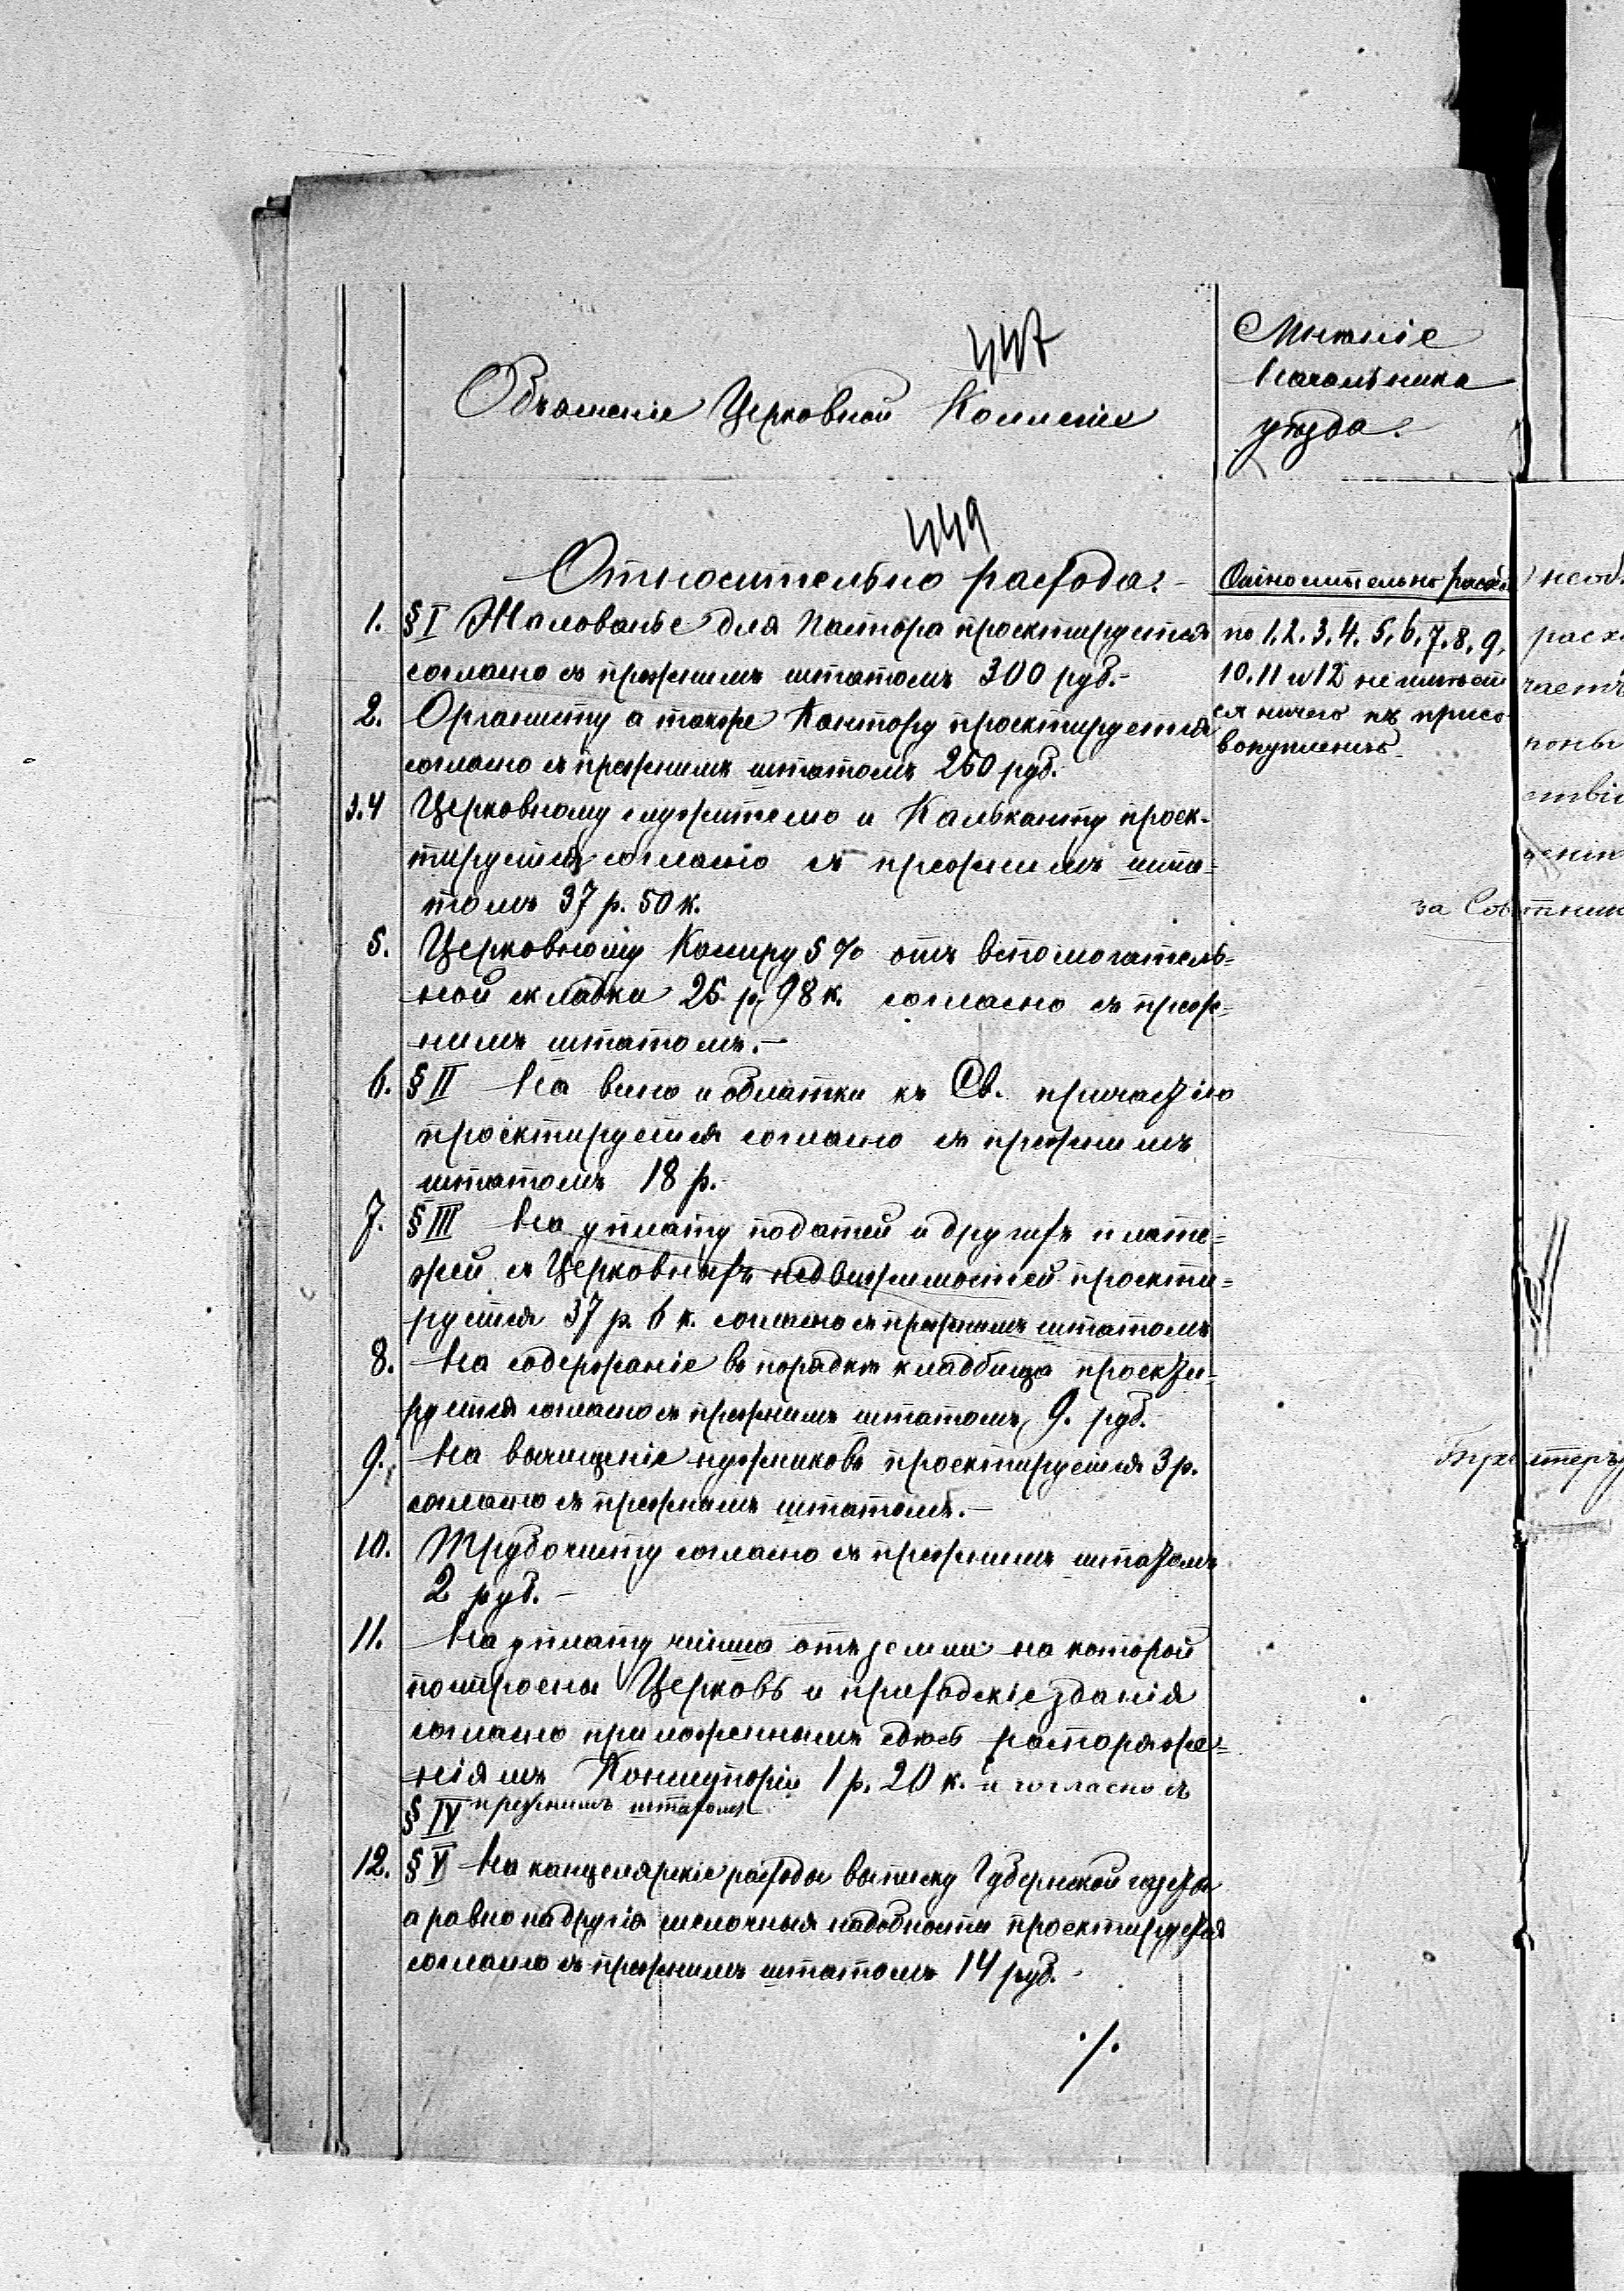 447
Объясненіе Церковной Коллегіи
Мнѣніе
Начальника
уѣзда.
449
Относительно расхода.-
1. § I Жалованье для Пастора проектируется
согласно съ прежнимъ штатомъ 300 руб.-
2. Органисту а также Кантору проектируется
согласно съ прежнимъ штатомъ 250 руб.
3.4 Церковному служителю и Кальканту проек-
тируется согласно съ прежнимъ шта=
томъ 37 р. 50 к.
5. Церковному Касиру 5% отъ вспомогатель=
ной складки 25 р. 98 к. согласно съ преж=
нимъ штатомъ.-
6. § II На вино и облатки къ Св. причастію
проектируется согласно съ прежнимъ
штатомъ 18 р.-
7. § III На уплату податей и другихъ плате=
жей съ Церковныхъ недвижимостей проекти=
руется 37 р. 6 к. согласно съ прежнимъ штатомъ
8. На содержаніе въ порядкѣ кладбища проекти=
руется согласно съ прежнимъ штатомъ 9. руб.-
9. На вычищеніе нужниковъ проектируется 3 р.
согласно съ прежнимъ штатомъ.-
10. Трубочисту согласно съ прежнимъ штатомъ
2 руб.-
11. На уплату чинша отъ земли на которой
построены Церковь и приходскіе зданія
согласно приложеннымъ здѣсь распоряже=
ніямъ Консисторіи 1 р. 20 к. и согласно съ
§ IV прежнимъ штатомъ
12. § V На канцелярскіе расходы выписку Губернской газеты
а равно на другія мелочныя надобности проектируется
согласно съ прежнимъ штатомъ 14 руб.-
./.
Относительно расхо
по 1. 2. 3. 4. 5. 6. 7. 8. 9.
10. 11 и 12 не имѣет
ся ничего къ присо
вокупленію.
необ
расх
частъ
ствіи
за Совѣтник
Бухгалтеръ